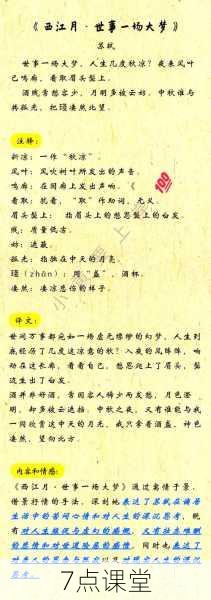 《西江月·世事一场大梦》
苏轼
世事一场大梦，人生几度秋凉？夜来风叶
已鸣廊，看取眉头鬓上。
酒贱常愁客少，月明多被云妨。中秋谁与
共孤光，把琖凄然北望。
注释：
新凉：一作“秋凉”。
风叶：风吹树叶所发出的声音。
鸣廊：在回廊上发出声响。《
看取：就看，“取”作助词，无义。
眉头鬓上：指眉头上的愁思鬓上的白发。
贱：质量低劣。
妨：遮蔽。
孤光：指独在中天的月亮。
琖（zhǎn）：同“盏”，酒杯。
凄然：凄凉悲伤的样子。
100
译文：
世间万事都宛如一场虚无缥缈的幻梦，人生到
底经历了几度这凉意的秋？入夜的风阵阵，响
动在这长廊，看看自己，愁思爬上了眉头，鬓
边生出了白发。
酒并非好酒，常因客人稀少而发愁，月色澄
明，却多被云遮挡。中秋之夜，又有谁能与我
一同欣赏这中天的月光，我只拿着酒盏，神色
凄然，望向北方。
内容和情感：
《西江月·世事一场大梦》通过哀情于景、
借景抒情的手法，深刻地表达了苏轼在谪居
生活中的苦闷心情和对人生的深沉思考，既
有对人生短促与虚幻的感慨，又有壮志难酬
的悲情和对世道险恶的痛愤，同时也表达了
7点课堂